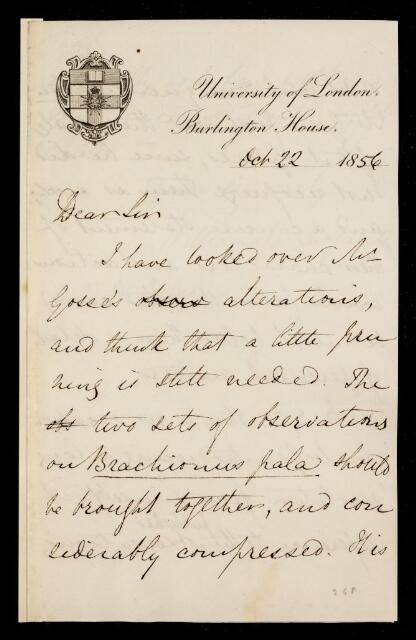 University of London.
Burlington House.
Oct 22 1856
Dear Sir
I have looked over Mr
Gosse's obsers alterations,
and think that a little pru
ning is still needed. The
obs two sets of observations
on Brachionus pala should
be brought together, and con
siderably compressed. His
268